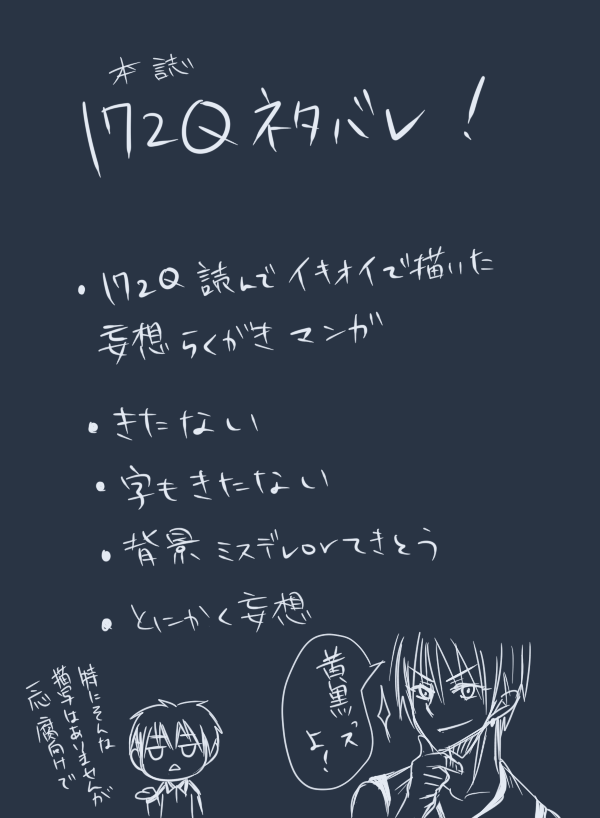 本誌
172Qネタバレ!
・172Q 読んで イキオイで描いた
妄想 らくがき マンガ
・きたない
・字もきたない
・背景 ミスデレorてきとう
・とにかく妄想
黄黒っス
よ!
特にそんな
描写はありませんが
一応 腐向けで